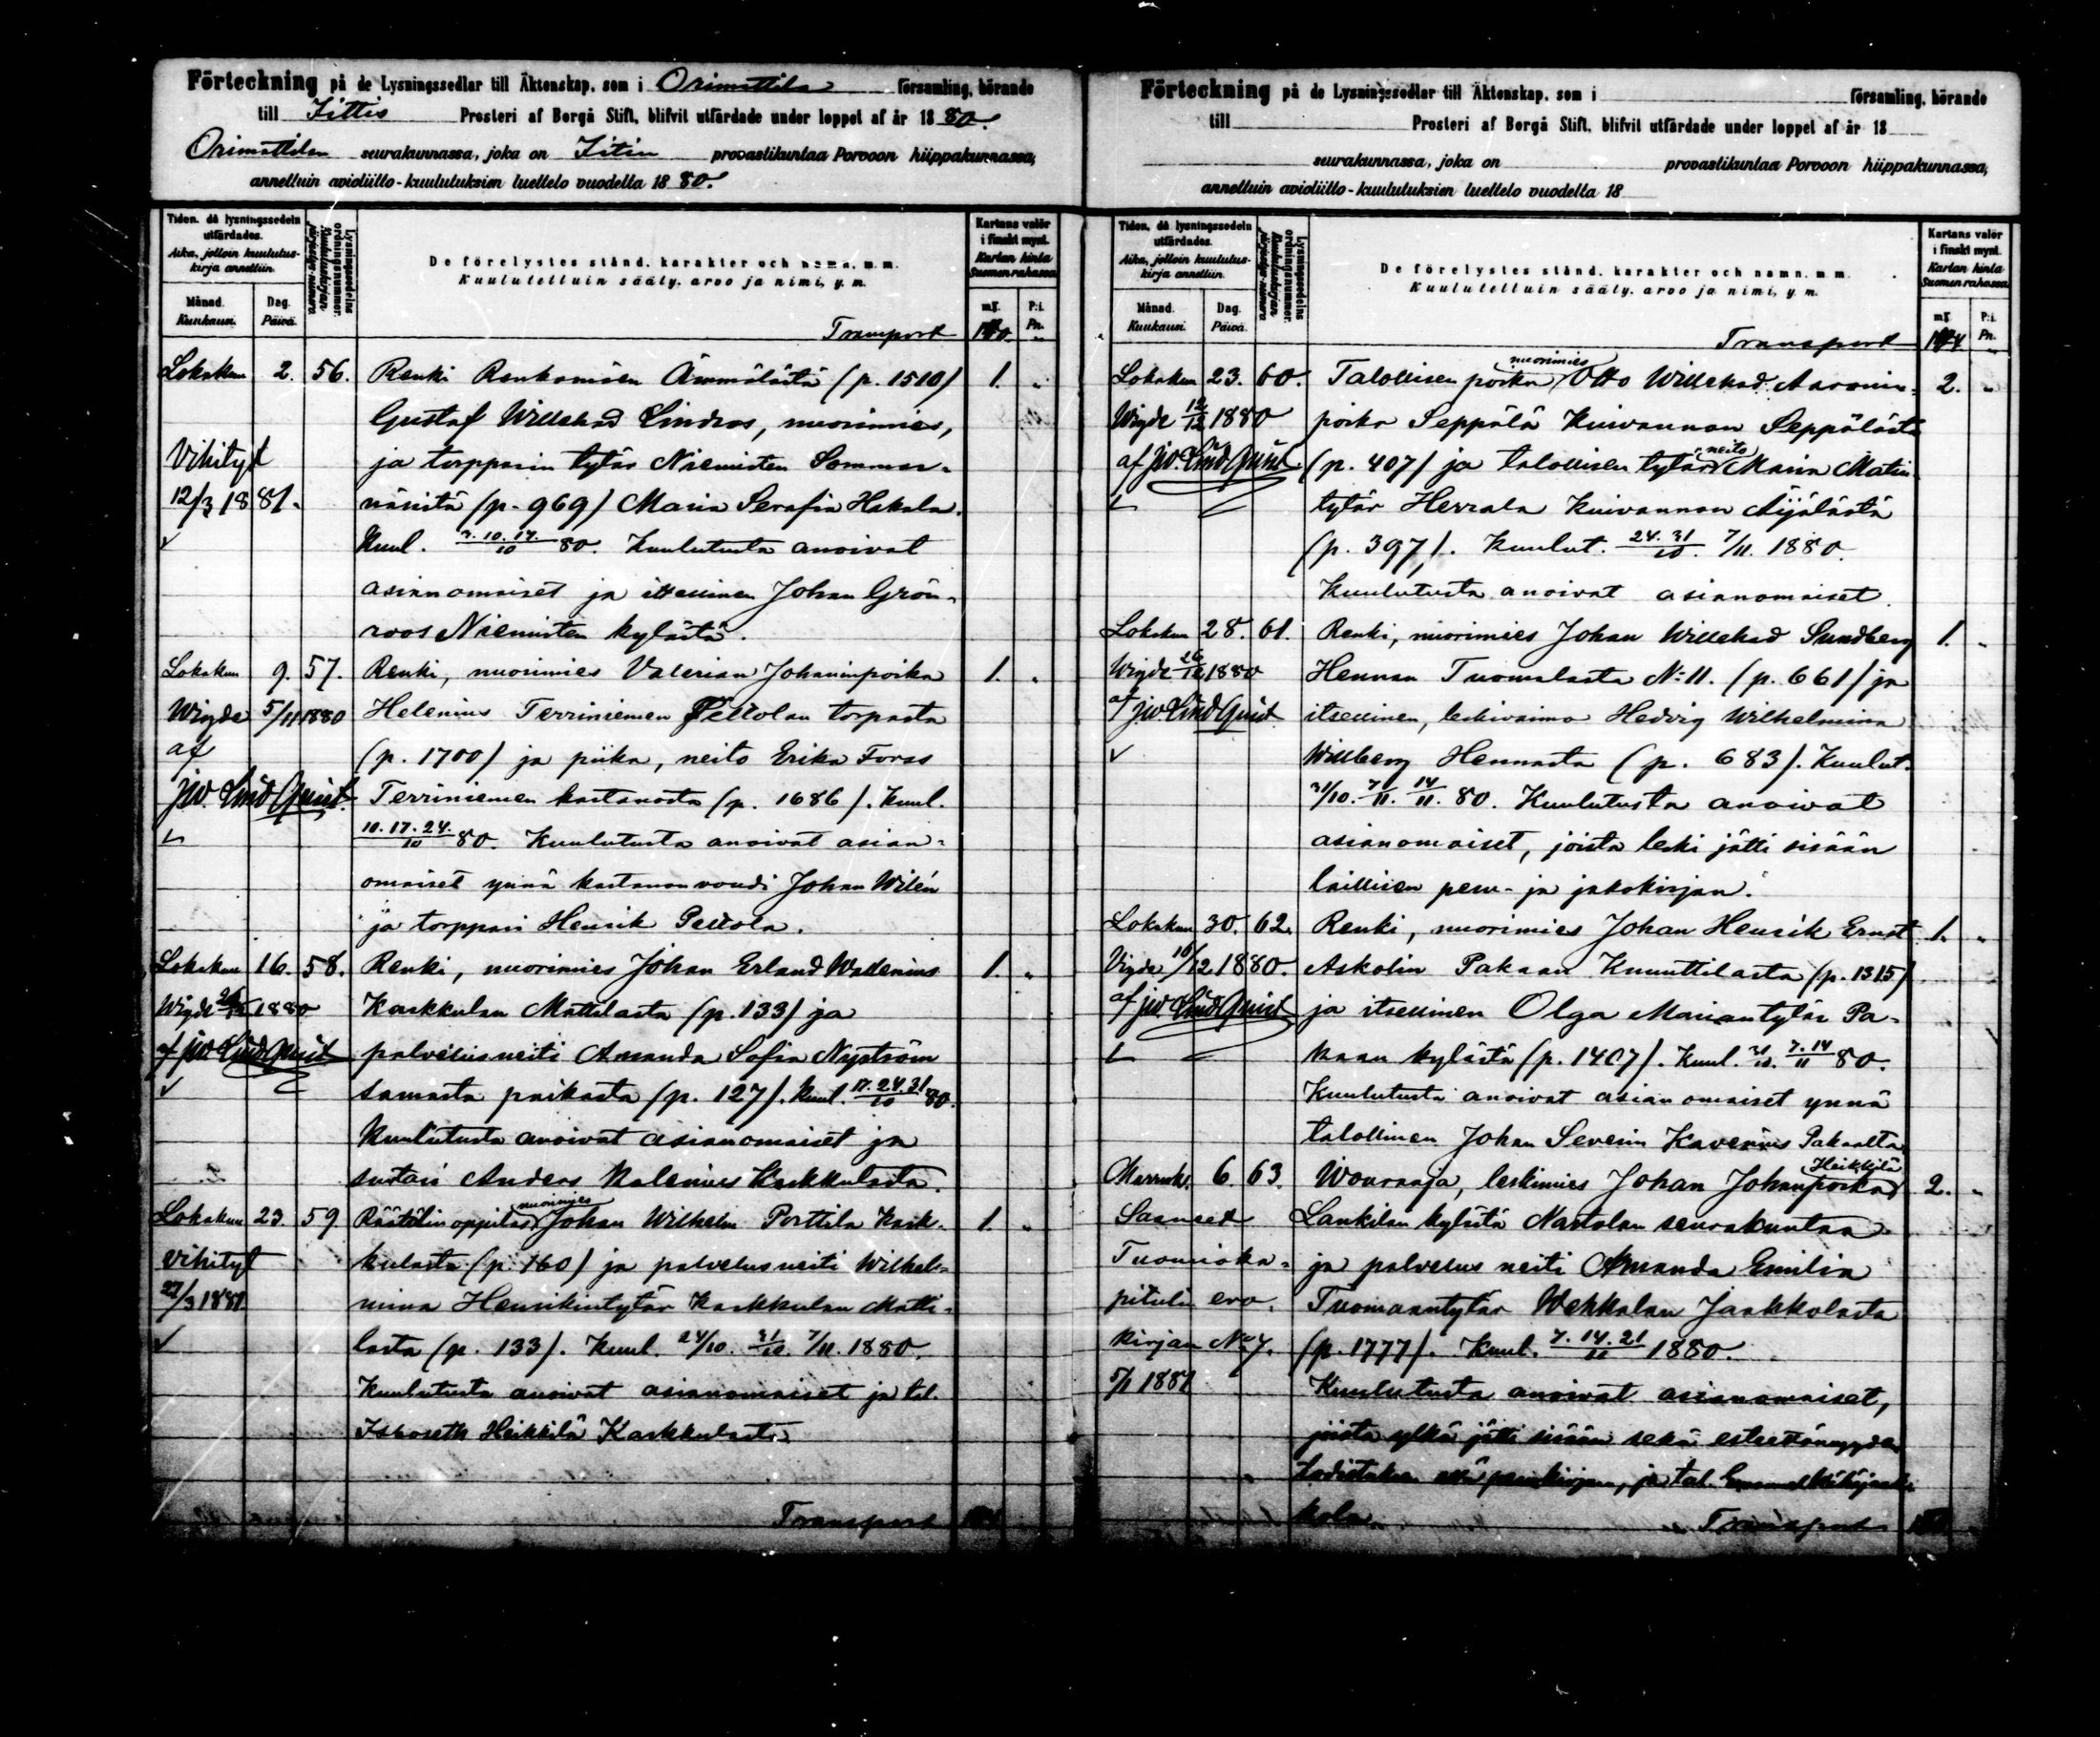 Förteckning på de Lysningssedlar till Äktenskap, som i Orimattila församling, hörande
till Iittis Prosteri af Borgå Stift, blifvit utfärdade under loppet af år 1880.
Orimattilan seurakunnassa, joka on Iitin provastikuntaa Porvoon hiippakunnassa,
annettuin avioliitto-kuulutuksien luettelo vuodella 1880.
Tiden, då lysningssedeln utfärdades.
Aika, jolloin kuulutus-kirja annettiin.
Månad. Kuukausi.
Dag. Päivä.
Lysningssedelns ordningsnummer.
Kuulutuskirjan järjestys-numero
De förelystes stånd, karakter och namn, m. m.
Kuulutettuin sääty, arvo ja nimi, y. m.
Kartans valör i finskt mynt.
Kartan hinta Suomen rahassa
mk P:i. Pn.
Transport
Lokakuu 2. 56. Renki Renkomäen Ämmälästä (p. 1510) 1. „
Gustaf Willehad Lindros, nuorimies,
Vihityt ja torpparin tytär Niemisten Sommar-
12/3 1881. näsitä (p. 969) Maria Serafia Hakala.
Kuul. 3. 10. 17./10 80. Kuulutusta anoivat
asianomaiset ja itsellinen Johan Grön-
roos Niemisten kylästä.
Lokakuu 9. 57. Renki, nuorimies Valerian Johaninpoika 1. „
Wigde 5/11 1880 Helenius Terriniemen Peltolan torpasta
af (p. 1700) ja piika, neito Erika Forss
JW. Lindquist. Terriniemen kartanosta (p. 1686). Kuul.
10. 17. 24./10 80. Kuulutusta anoivat asian-
omaiset ynnä kartanonvouti Johan Wilén
ja torppari Henrik Peltola.
Lokakuu 16. 58. Renki, nuorimies Johan Erland Wallenius 1. „
Wigde 1880 Karkkulan Mattilasta (p. 133) ja
af JW. Lindquist palvelusneiti Amanda Sofia Nyström
samasta paikasta (p. 127). Kuul. 17. 24. 31/10 80.
Kuulutusta anoivat asianomaiset ja
suutari Anders Kalenius Karkkulasta.
nuorimies
Lokakuu 23. 59 Räätälinoppilas Johan Wilhelm Perttila Kark- 1. „
Vihityt kulasta (p. 160) ja palvelusneiti Wilhel-
27/3 1881 mina Henrikintytär Karkkulan Matti-
lasta (p. 133). Kuul. 24/10. 31/10. 7/11. 1880.
Kuulutusta anoivat asianomaiset ja tal.
Isboseth Heikkilä Karkkulasta.
Transport
Förteckning på de Lysningssedlar till Äktenskap, som i församling, hörande
till Prosteri af Borgå Stift, blifvit utfärdade under loppet af år 18
seurakunnassa, joka on provastikuntaa Porvoon hiippakunnassa,
annettuin avioliitto-kuulutuksien luettelo vuodella 18
Tiden, då lysningssedeln utfärdades.
Aika, jolloin kuulutus-kirja annettiin.
Månad. Kuukausi.
Dag. Päivä.
Lysningssedelns ordningsnummer.
Kuulutuskirjan järjestys-numero
De förelystes stånd, karakter och namn, m. m.
Kuulutettuin sääty, arvo ja nimi, y. m.
Kartans valör i finskt mynt.
Kartan hinta Suomen rahassa
mk P:i. Pn.
Transport
nuorimies
Lokakuu 23. 60. Talollisen poika Otto Willehad Aaronin- 2. „
Wigde 12/12 1880 poika Seppälä Kuivannon Seppälästä
neito
af JW. Lindquist. (p. 407) ja talollisen tytär Maria Matin
tytär Herrala Kuivannon Äijälästä
(p. 397). Kuulut. 24. 31/10. 7/11. 1880.
Kuulutusta anoivat asianomaiset.
Lokakuu 28. 61. Renki, nuorimies Johan Willehad Sundberg 1. „
Wigde 26/12 1880 Hennan Tuomalasta N:11. (p. 661) ja
af JW Lindquist itsellinen, leskivaimo Hedvig Wilhelmina
Willberg Hennasta (p. 683). Kuulut.
31/10. 7/11. 14/11. 80. Kuulutusta anoivat
asianomaiset, joista leski jätti sisään
laillisen peru- ja jakokirjan.
Lokakuu 30. 62. Renki, nuorimies Johan Henrik Ernst 1. „
Vigde 10/12 1880. Askolin Pakaan Knuuttilasta (p. 1315)
af JW Lindquist ja itsellinen Olga Mariantytär Pa-
kaan kylästä (p. 1407). Kuul. 31/10. 7. 14/11 80.
Kuulutusta anoivat asianomaiset ynnä
talollinen Johan Severin Kavenius Pakaalta.
Heikkilä
Marrask. 6. 63. Wouraaja, leskimies Johan Johaninpoika 2. „
Saaneet Lankilan kylästä Nastolan seurakuntaa
Tuomioka- ja palvelus neiti Amanda Emilia
pitulin ero- Tuomaantytär Wehkalan Jaakkolasta
kirjan No 7. (p. 1777). Kuul. 7. 14. 21/11 1880.
5/1 1881 Kuulutusta anoivat asianomaiset,
joista ylkä jätti sisään sekä esteettömyyden
todistuksen että perukirjan, ja tal.
kola. Transport